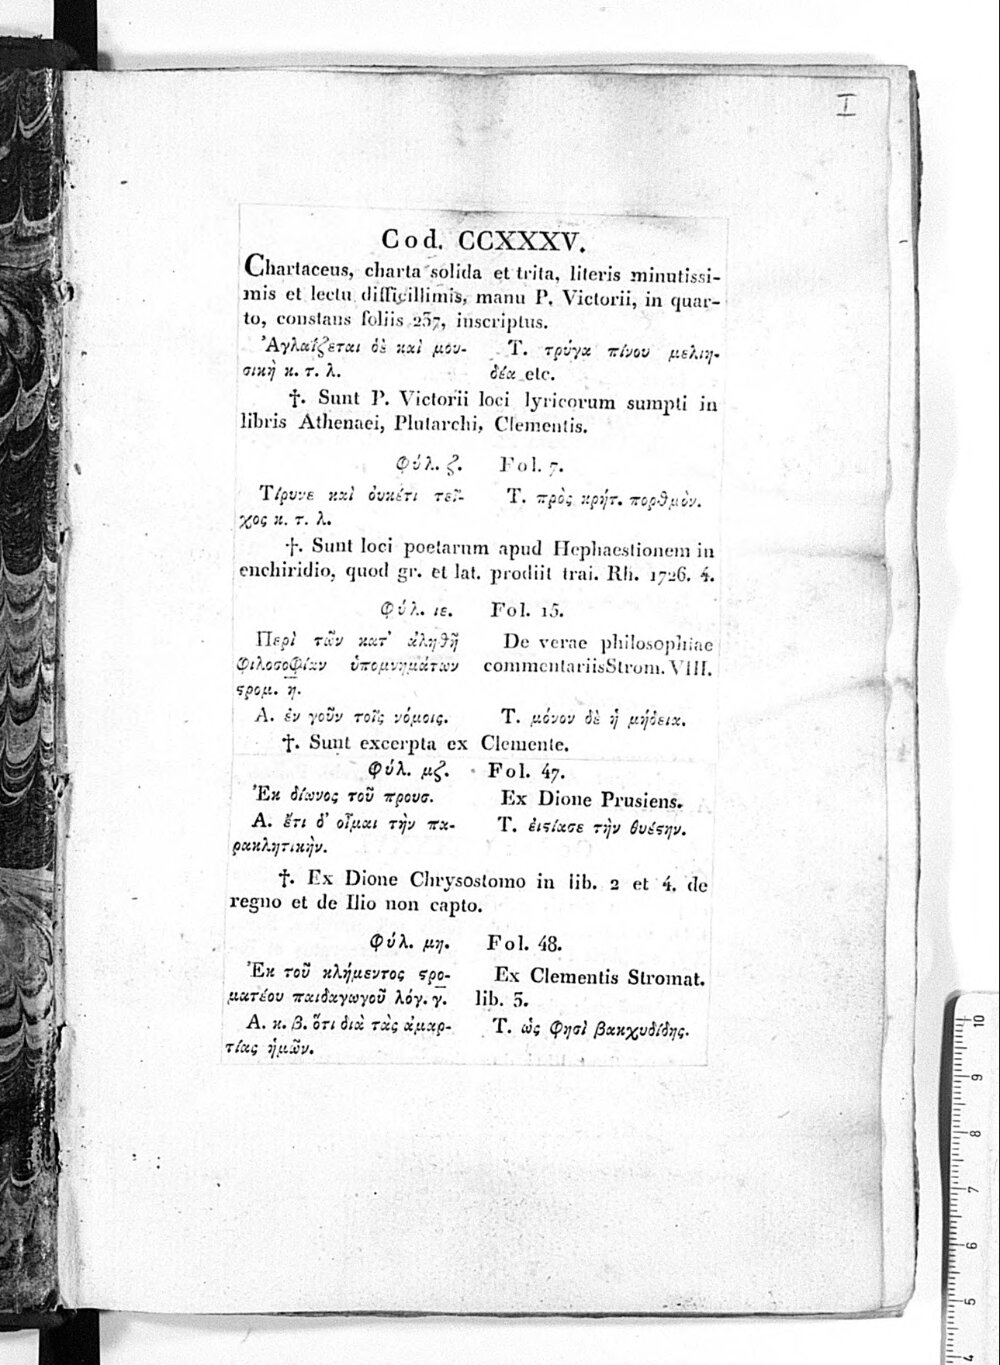 I
Cod. CCXXXV.
Chartaceus, charta solida et trita, literis minutissi-
mis et lectu difficillimis, manu P. Victorii, in quar-
to, constans foliis 237, inscriptus.
Ἀγλαΐζεται δὲ καὶ μου- Τ. τρύγα πίνου μελιη-
σικὴ κ. τ. λ. δέα etc.
†. Sunt P. Victorii loci lyricorum sumpti in
libris Athenaei, Plutarchi, Clementis.
Φύλ. ζ. Fol. 7.
Τίρυνε καὶ ὀυκέτι τεῖ- Τ. πρὸς κρήτ. πορθμὸν.
χος κ. τ. λ.
†. Sunt loci poetarum apud Hephaestionem in
enchiridio, quod gr. et lat. prodiit trai. Rh. 1726. 4.
Φύλ. ιε. Fol. 15.
Περὶ τῶν κατ' ἀληθῆ De verae philosophiae
φιλοσοφίαν ὑπομνημάτων commentariis Strom. VIII.
ϛρομ. η.
Α. ἐν γοῦν τοῖς νόμοις. Τ. μόνον δὲ ἡ μήδεια.
†. Sunt excerpta ex Clemente.
Φύλ. μζ. Fol. 47.
Ἐκ δίωνος τοῦ προυσ. Ex Dione Prusiens.
Α. ἔτι δ' οἶμαι τὴν πα- Τ. ἐιϛίασε τὴν θυέϛην.
ρακλητικὴν.
†. Ex Dione Chrysostomo in lib. 2 et 4. de
regno et de Ilio non capto.
Φύλ. μη. Fol. 48.
Ἐκ τοῦ κλήμεντος ϛρο- Ex Clementis Stromat.
ματέου παιδαγωγοῦ λόγ. γ. lib. 3.
Α. κ. β. ὅτι διὰ τὰς ἁμαρ- Τ. ὡς φησὶ βακχυδίδης.
τίας ἡμῶν.
10
9
8
7
6
5
4